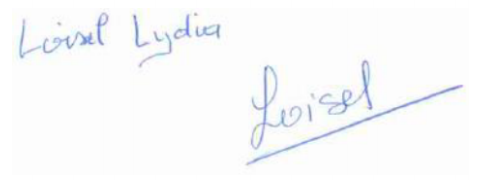 Loisel Lydia
Loisel